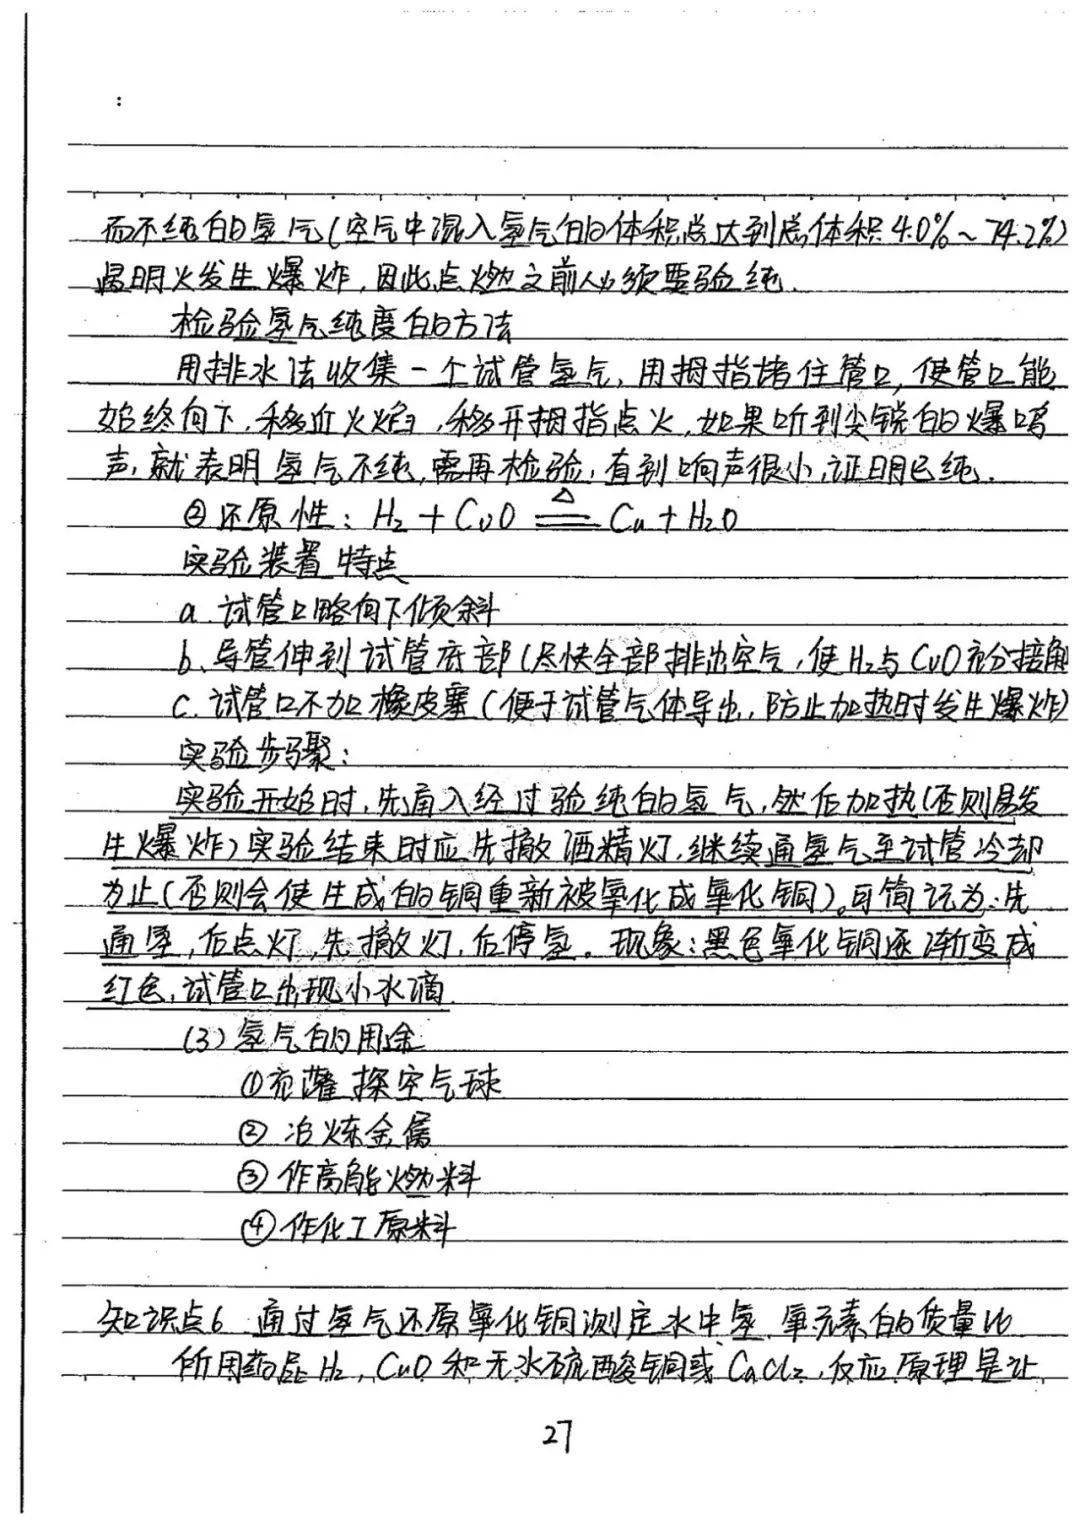 :
而不纯的氢气(空气中混入氢气的体积总达到总体积4.0%~74.2%)
遇明火发生爆炸,因此点燃之前必须要验纯.
检验氢气纯度的方法
用排水法收集一个试管氢气,用拇指堵住管口,使管口能
始终向下,移近火焰,移开拇指点火,如果听到尖锐的爆鸣
声,就表明氢气不纯,需再检验,直到响声很小,证明已纯.
②还原性:H₂+CuO ≜ Cu+H₂O
实验装置特点
a.试管口略向下倾斜
b.导管伸到试管底部(尽快全部排出空气,使H₂与CuO充分接触
c.试管口不加橡皮塞(便于试管气体导出,防止加热时发生爆炸)
实验步骤:
实验开始时,先通入经过验纯的氢气,然后加热(否则易发
生爆炸)实验结束时应先撤酒精灯,继续通氢气至试管冷却
为止(否则会使生成的铜重新被氧化成氧化铜)。可简记为:先
通氢,后点灯,先撤灯,后停氢。现象:黑色氧化铜逐渐变成
红色,试管口出现小水滴.
(3)氢气的用途
①充灌探空气球
②冶炼金属
③作高能燃料
④作化工原料
知识点6 通过氢气还原氧化铜测定水中氢、氧元素的质量比
所用药品H₂,CuO和无水硫酸铜或CaCl₂,反应原理是让
27